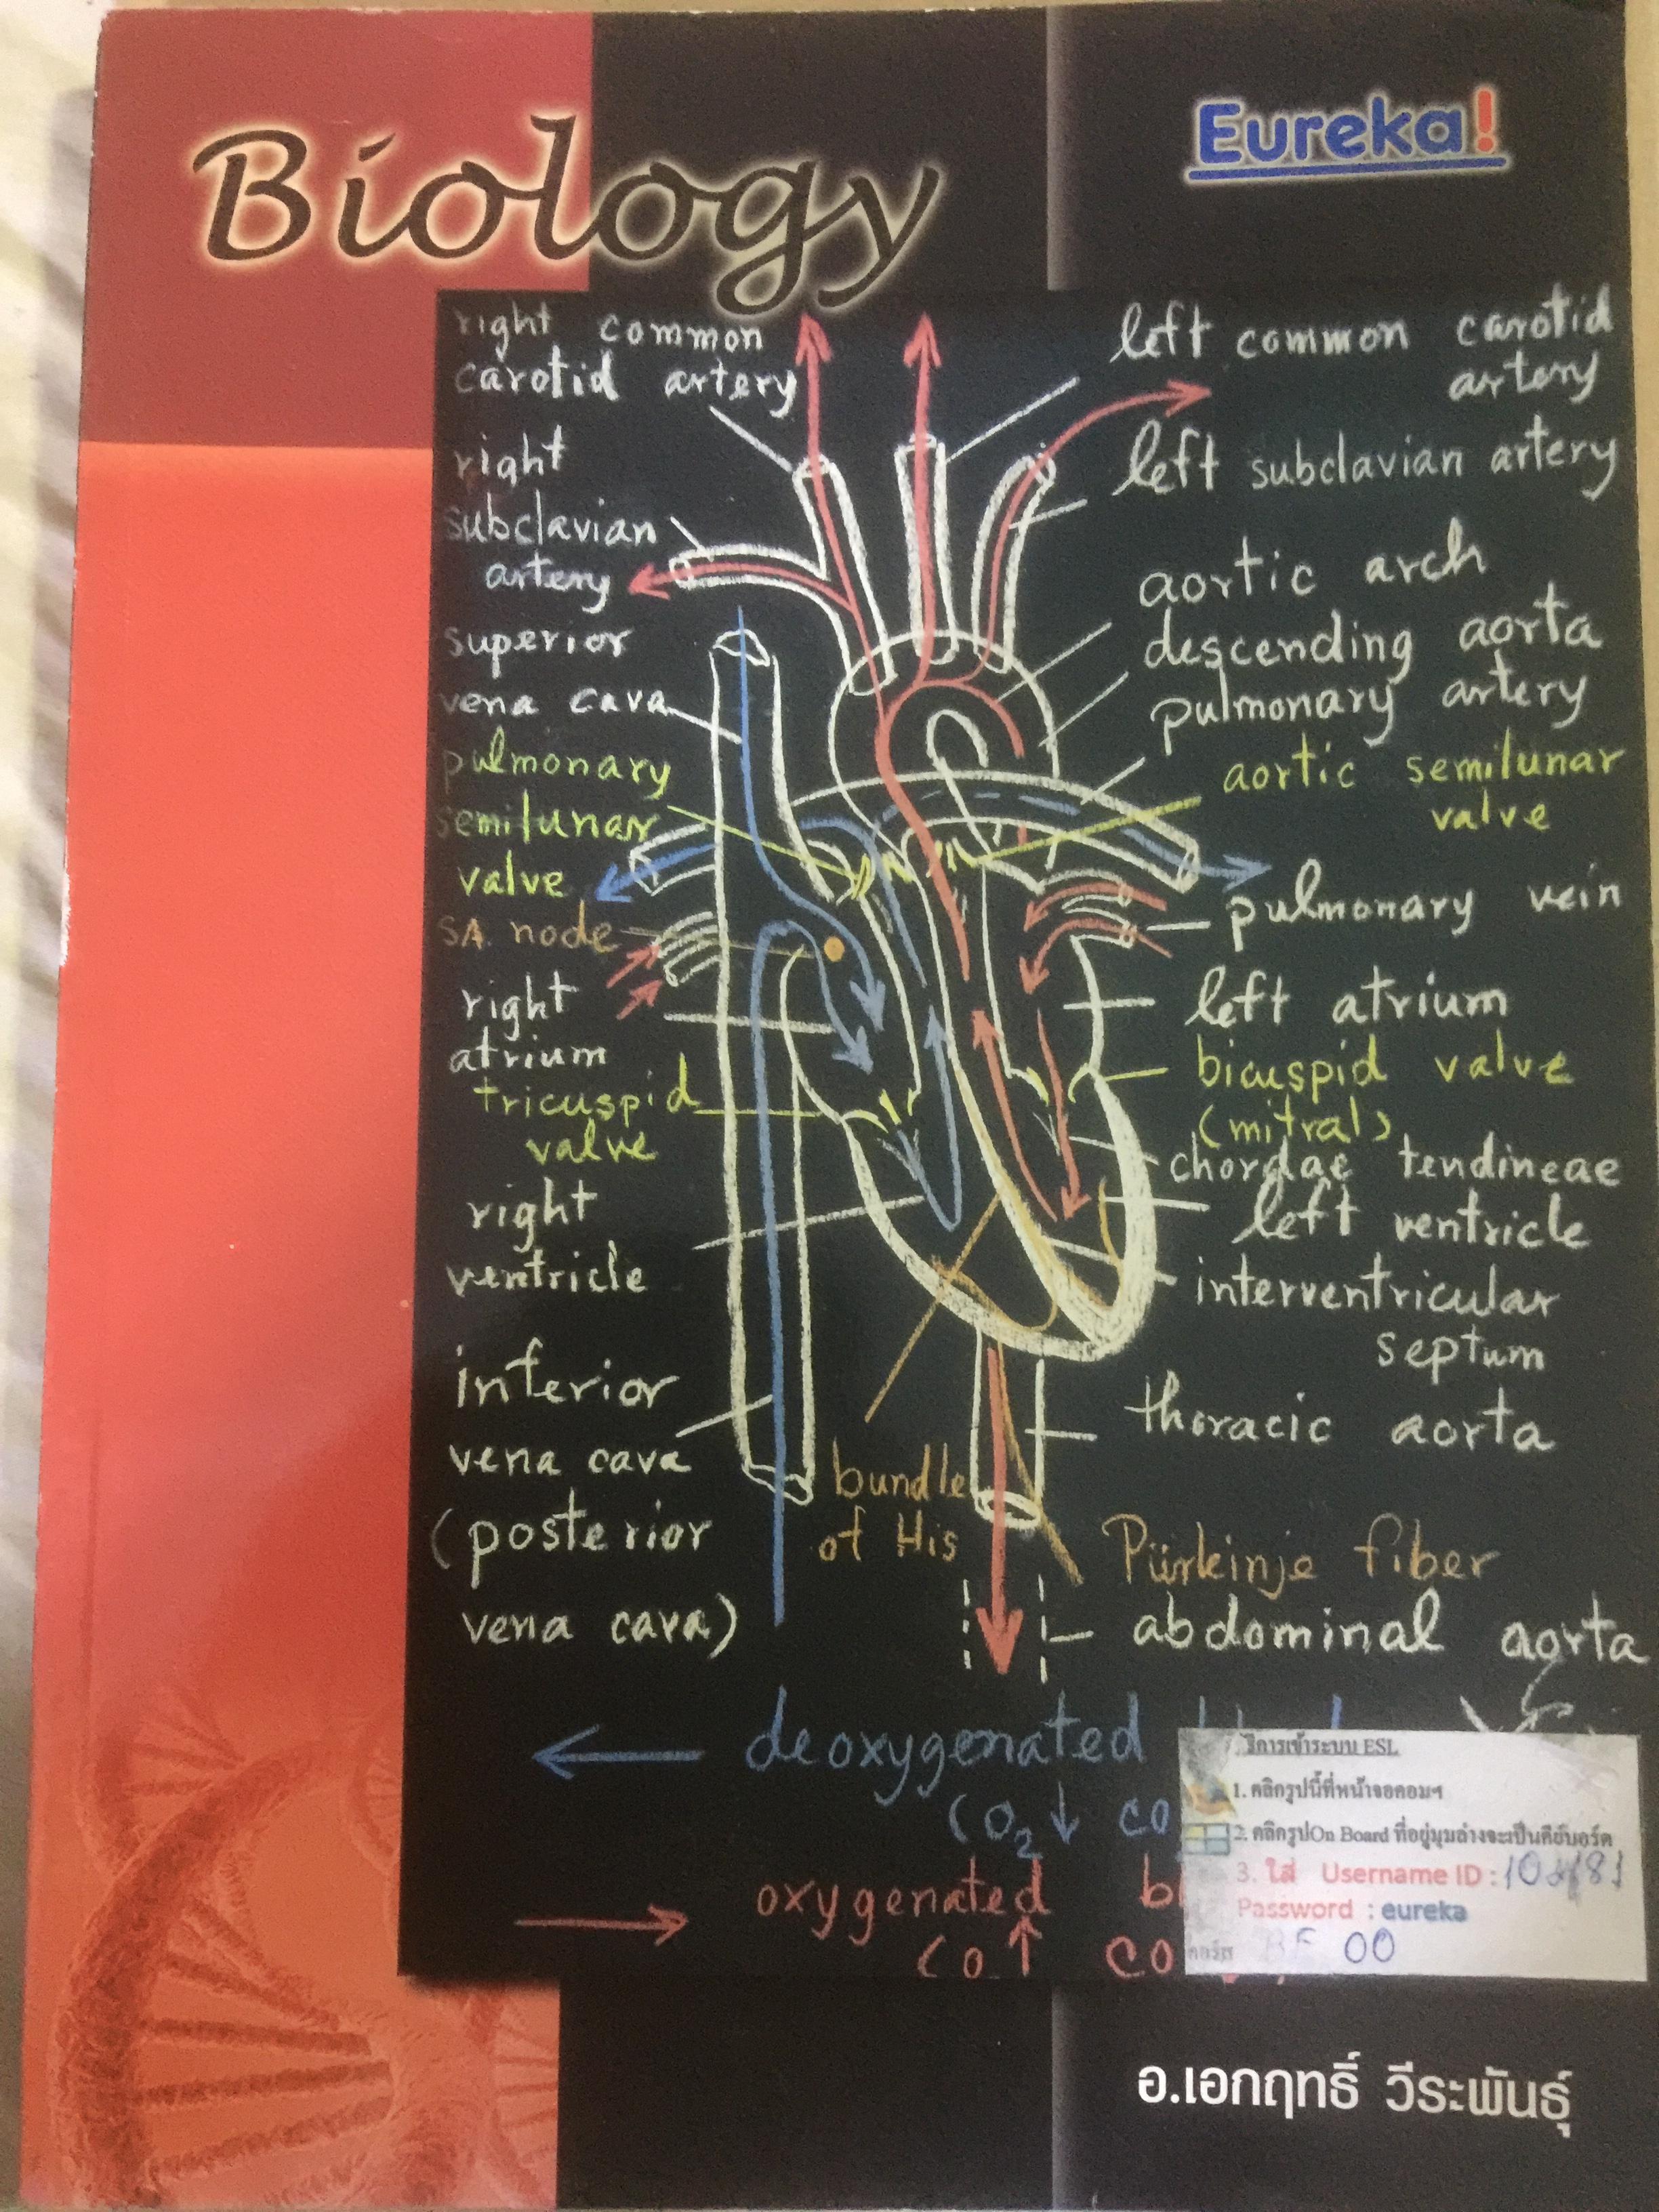 Biology
Eureka!
right common
carotid artery
right
subclavian
artery
superior
vena cava
pulmonary
semilunar
valve
SA node
right
atrium
tricuspid
valve
right
ventricle
inferior
vena cava
(posterior
vena cava)
left common carotid
artery
left subclavian artery
aortic arch
descending aorta
pulmonary artery
aortic semilunar
valve
pulmonary vein
left atrium
bicuspid valve
(mitral)
chordae tendineae
left ventricle
interventricular
septum
thoracic aorta
bundle
of His
Pürkinje fiber
abdominal aorta
deoxygenated
(O2↓ CO
oxygenated
(O↑ CO
วิธีการเข้าระบบ ESL
1. คลิกรูปนี้ที่หน้าจอคอมฯ
2. คลิกรูปOn Board ที่อยู่มุมล่างจะเป็นคีย์บอร์ด
3. ใส่ Username ID :
Password : eureka
00
อ.เอกฤทธิ์ วีระพันธุ์